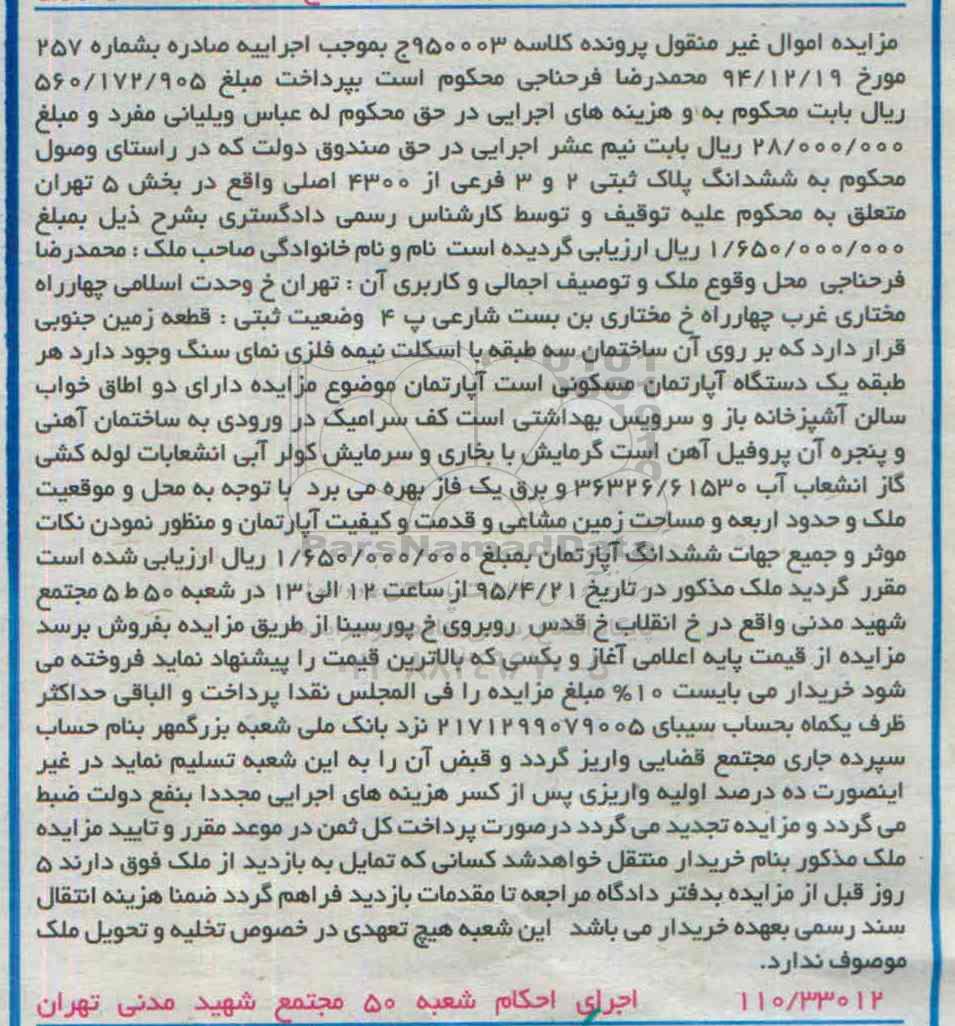 مزایده اموال غیر منقول پرونده کلاسه ۹۵۰۰۰۳ج بموجب اجراییه صادره بشماره ۲۵۷
مورخ ۹۴/۱۲/۱۹ محمدرضا فرحناجی محکوم است بپرداخت مبلغ ۵۶۰/۱۷۲/۹۰۵
ریال بابت محکوم به و هزینه های اجرایی در حق محکوم له عباس ویلیانی مفرد و مبلغ
۲۸/۰۰۰/۰۰۰ ریال بابت نیم عشر اجرایی در حق صندوق دولت که در راستای وصول
محکوم به ششدانگ پلاک ثبتی ۲ و ۳ فرعی از ۴۳۰۰ اصلی واقع در بخش ۵ تهران
متعلق به محکوم علیه توقیف و توسط کارشناس رسمی دادگستری بشرح ذیل بمبلغ
۱/۶۵۰/۰۰۰/۰۰۰ ریال ارزیابی گردیده است نام و نام خانوادگی صاحب ملک : محمدرضا
فرحناجی محل وقوع ملک و توصیف اجمالی و کاربری آن : تهران خ وحدت اسلامی چهارراه
مختاری غرب چهارراه خ مختاری بن بست شارعی پ ۴ وضعیت ثبتی : قطعه زمین جنوبی
قرار دارد که بر روی آن ساختمان سه طبقه با اسکلت نیمه فلزی نمای سنگ وجود دارد هر
طبقه یک دستگاه آپارتمان مسکونی است آپارتمان موضوع مزایده دارای دو اطاق خواب
سالن آشپزخانه باز و سرویس بهداشتی است کف سرامیک در ورودی به ساختمان آهنی
و پنجره آن پروفیل آهن است گرمایش با بخاری و سرمایش کولر آبی انشعابات لوله کشی
گاز انشعاب آب ۳۶۳۲۶/۶۱۵۳۰ و برق یک فاز بهره می برد با توجه به محل و موقعیت
ملک و حدود اربعه و مساحت زمین مشاعی و قدمت و کیفیت آپارتمان و منظور نمودن نکات
موثر و جمیع جهات ششدانگ آپارتمان بمبلغ ۱/۶۵۰/۰۰۰/۰۰۰ ریال ارزیابی شده است
مقرر گردید ملک مذکور در تاریخ ۹۵/۴/۲۱ از ساعت ۱۲ الی ۱۳ در شعبه ۵۰ ط ۵ مجتمع
شهید مدنی واقع در خ انقلاب خ قدس روبروی خ پورسینا از طریق مزایده بفروش برسد
مزایده از قیمت پایه اعلامی آغاز و بکسی که بالاترین قیمت را پیشنهاد نماید فروخته می
شود خریدار می بایست ۱۰% مبلغ مزایده را فی المجلس نقدا پرداخت و الباقی حداکثر
ظرف یکماه بحساب سیبای ۲۱۷۱۲۹۹۰۷۹۰۰۵ نزد بانک ملی شعبه بزرگمهر بنام حساب
سپرده جاری مجتمع قضایی واریز گردد و قبض آن را به این شعبه تسلیم نماید در غیر
اینصورت ده درصد اولیه واریزی پس از کسر هزینه های اجرایی مجددا بنفع دولت ضبط
می گردد و مزایده تجدید می گردد درصورت پرداخت کل ثمن در موعد مقرر و تایید مزایده
ملک مذکور بنام خریدار منتقل خواهدشد کسانی که تمایل به بازدید از ملک فوق دارند ۵
روز قبل از مزایده بدفتر دادگاه مراجعه تا مقدمات بازدید فراهم گردد ضمنا هزینه انتقال
سند رسمی بعهده خریدار می باشد این شعبه هیچ تعهدی در خصوص تخلیه و تحویل ملک
موصوف ندارد.
۱۱۰/۳۳۰۱۲ اجرای احکام شعبه ۵۰ مجتمع شهید مدنی تهران
ParsNamadData